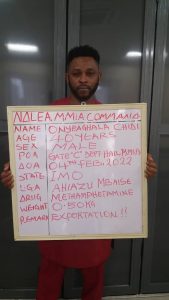 NDLEA.MMIA COMMAND
NAME ONYEAGHALA CHIDI
AGE 40 YEARS
SEX MALE
POA GATE "C" DEPT HALL, MMIA
DOA 04TH FEB. 2022
STATE IMO
LGA AHIAZU MBAISE
DRUG METHAMPHETAMINE
WEIGHT 0.550KG
REMARK EXPORTATION!!